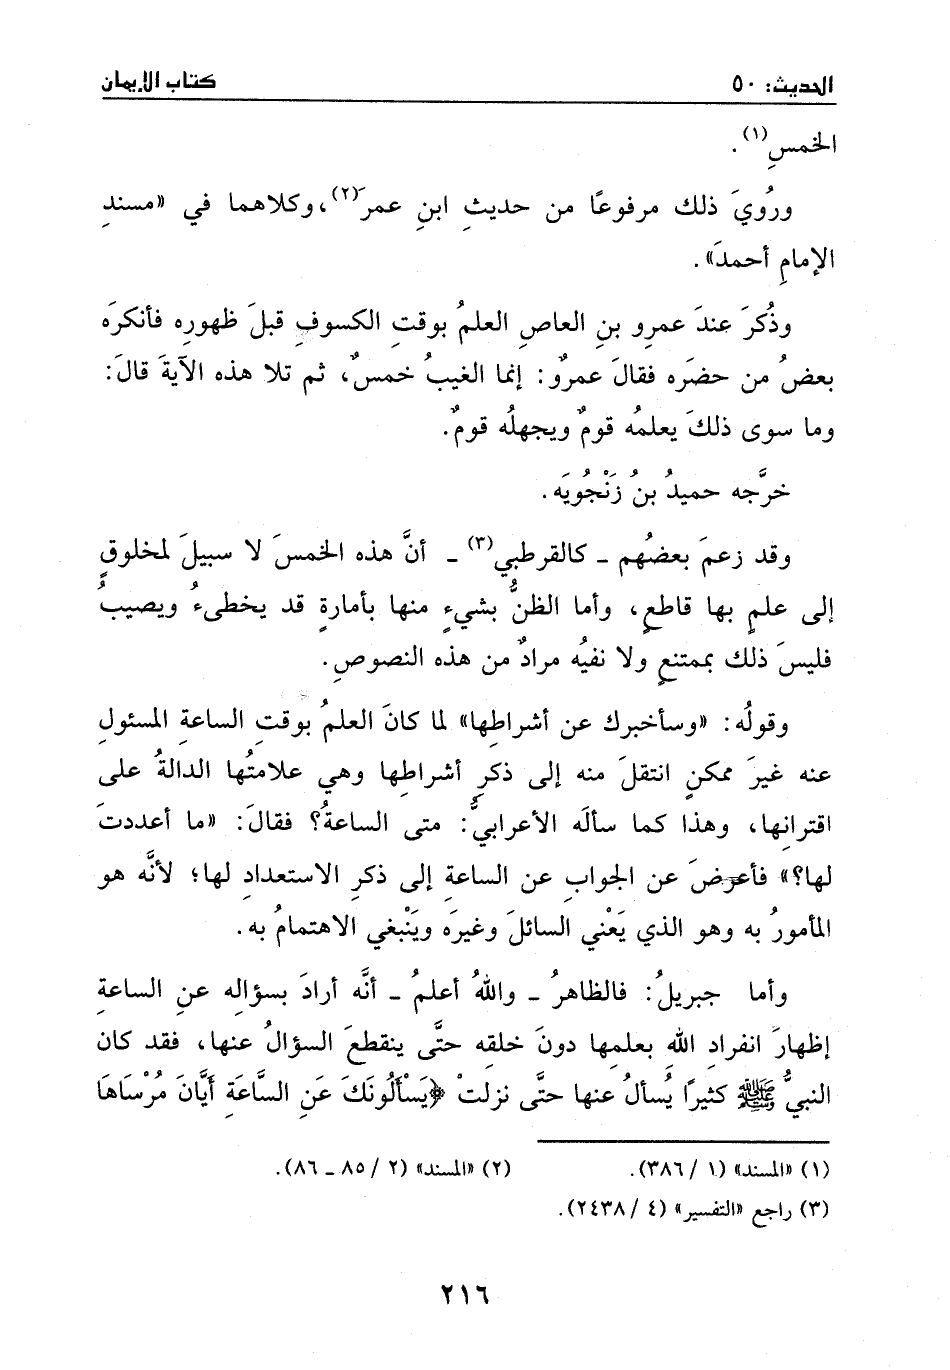 الحديث: ٥٠
كتاب الإيمان
الخمسِ(١).
ورُويَ ذلك مرفوعًا من حديثِ ابنِ عمرَ(٢)، وكلاهما في «مسندِ
الإمامِ أحمدَ».
وذُكرَ عندَ عمرِو بنِ العاصِ العلمُ بوقتِ الكسوفِ قبلَ ظهورِه فأنكرَه
بعضُ من حضرَه فقالَ عمرٌو: إنما الغيبُ خمسٌ، ثم تلا هذه الآيةَ قالَ:
وما سوى ذلكَ يعلمُه قومٌ ويجهلُه قومٌ.
خرَّجه حميدُ بنُ زَنْجُويَه.
وقد زعمَ بعضُهم ـ كالقرطبي(٣) ـ أنَّ هذه الخمسَ لا سبيلَ لمخلوقٍ
إلى علمٍ بها قاطعٍ، وأما الظنُّ بشيءٍ منها بأمارةٍ قد يخطىءُ ويصيبُ
فليسَ ذلك بممتنعٍ ولا نفيُه مرادٌ من هذه النصوصِ.
وقولُه: «وسأخبرك عن أشراطِها» لما كانَ العلمُ بوقتِ الساعةِ المسئولِ
عنه غيرَ ممكنٍ انتقلَ منه إلى ذكرِ أشراطِها وهي علامتُها الدالةُ على
اقترانِها، وهذا كما سألَه الأعرابيُّ: متى الساعةُ؟ فقالَ: «ما أعددتَ
لها؟» فأعرضَ عن الجوابِ عن الساعةِ إلى ذكرِ الاستعدادِ لها؛ لأنَّه هو
المأمورُ به وهو الذي يَعْني السائلَ وغيرَه ويَنْبغي الاهتمامُ به.
وأما جبريلُ: فالظاهرُ ـ واللهُ أعلمُ ـ أنَّه أرادَ بسؤاله عنِ الساعةِ
إظهارَ انفرادِ اللهِ بعلمِها دونَ خلقِه حتَّى ينقطعَ السؤالُ عنها، فقد كان
النبيُّ ﷺ كثيرًا يُسألُ عنها حتَّى نزلتْ ﴿يَسْأَلُونَكَ عَنِ السَّاعَةِ أَيَّانَ مُرْسَاهَا
(١) «المسند» (١ /٣٨٦).
(٢) «المسند» (٢ /٨٥ ـ ٨٦).
(٣) راجع «التفسير» (٤ /٢٤٣٨).
٢١٦